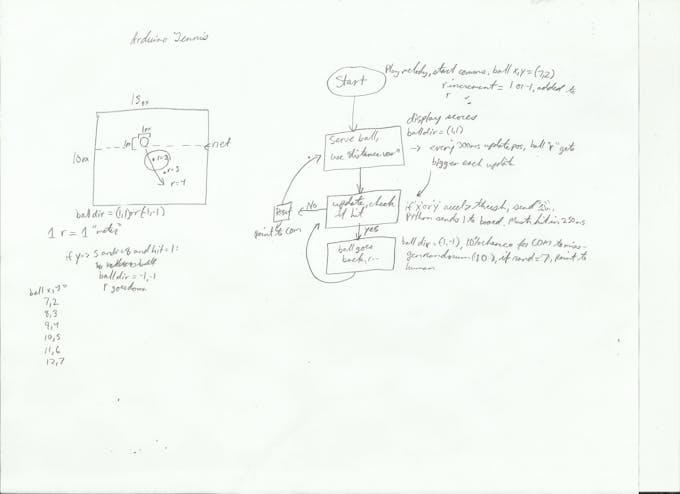 Arduino Tennis
15m
1m
1m
r=2
r=3
r=4
net
10m
ball dir = (1,1) or (-1,-1)
1 r = 1 "meter"
if y => 5 and <=8 and hit = 1:
ball dir = -1,-1
r goes down
ball x,y =
7,2
8,3
9,4
10,5
11,6
12,7
Start
Play melody, start comms, ball x,y = (7,2)
r increment = 1 or -1, added to
r
Serve ball,
use "distance var"
display scores
ball dir = (1,1)
→ every 300ms update pos, ball "r" gets
bigger each update
update, check
if hit
No
Reset
point to com
yes
if x or y accel > thresh, send
Python sends 1 to board. Must hit in 250ms
ball goes
back, r--
ball dir = (-1,-1), 10% chance for COM to miss
gen random (10), if rand = 7, point to
human